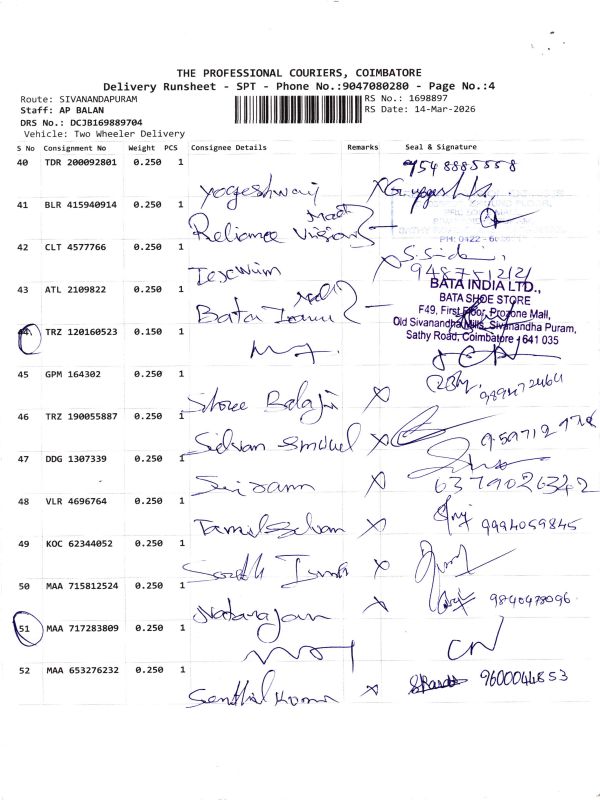 THE PROFESSIONAL COURIERS, COIMBATORE
Delivery Runsheet - SPT - Phone No.:9047080280 - Page No.:4
Route: SIVANANDAPURAM
RS No.: 1698897
Staff: AP BALAN
RS Date: 14-Mar-2026
DRS No.: DCJB169889704
Vehicle: Two Wheeler Delivery
S No Consignment No Weight PCS Consignee Details Remarks Seal & Signature
40 TDR 200092801 0.250 1 9548885558
Yogeshwari
41 BLR 415940914 0.250 1
Reliance Vision
42 CLT 4577766 0.250 1
43 ATL 2109822 0.250 1
BATA INDIA LTD.,
BATA SHOE STORE
Bata
F49, First Floor, Prozone Mall,
Old Sivanandha Mills, Sivanandha Puram,
Sathy Road, Coimbatore - 641 035
44 TRZ 120160523 0.150 1
45 GPM 164302 0.250 1
Shree Balaji
46 TRZ 190055887 0.250 1
47 DDG 1307339 0.250 1
Sriram
6379026342
48 VLR 4696764 0.250 1
Tamilselvan
9994059845
49 KOC 62344052 0.250 1
50 MAA 715812524 0.250 1
Natarajan
9840478096
51 MAA 717283809 0.250 1
52 MAA 653276232 0.250 1
Senthil Kumar
9600044853